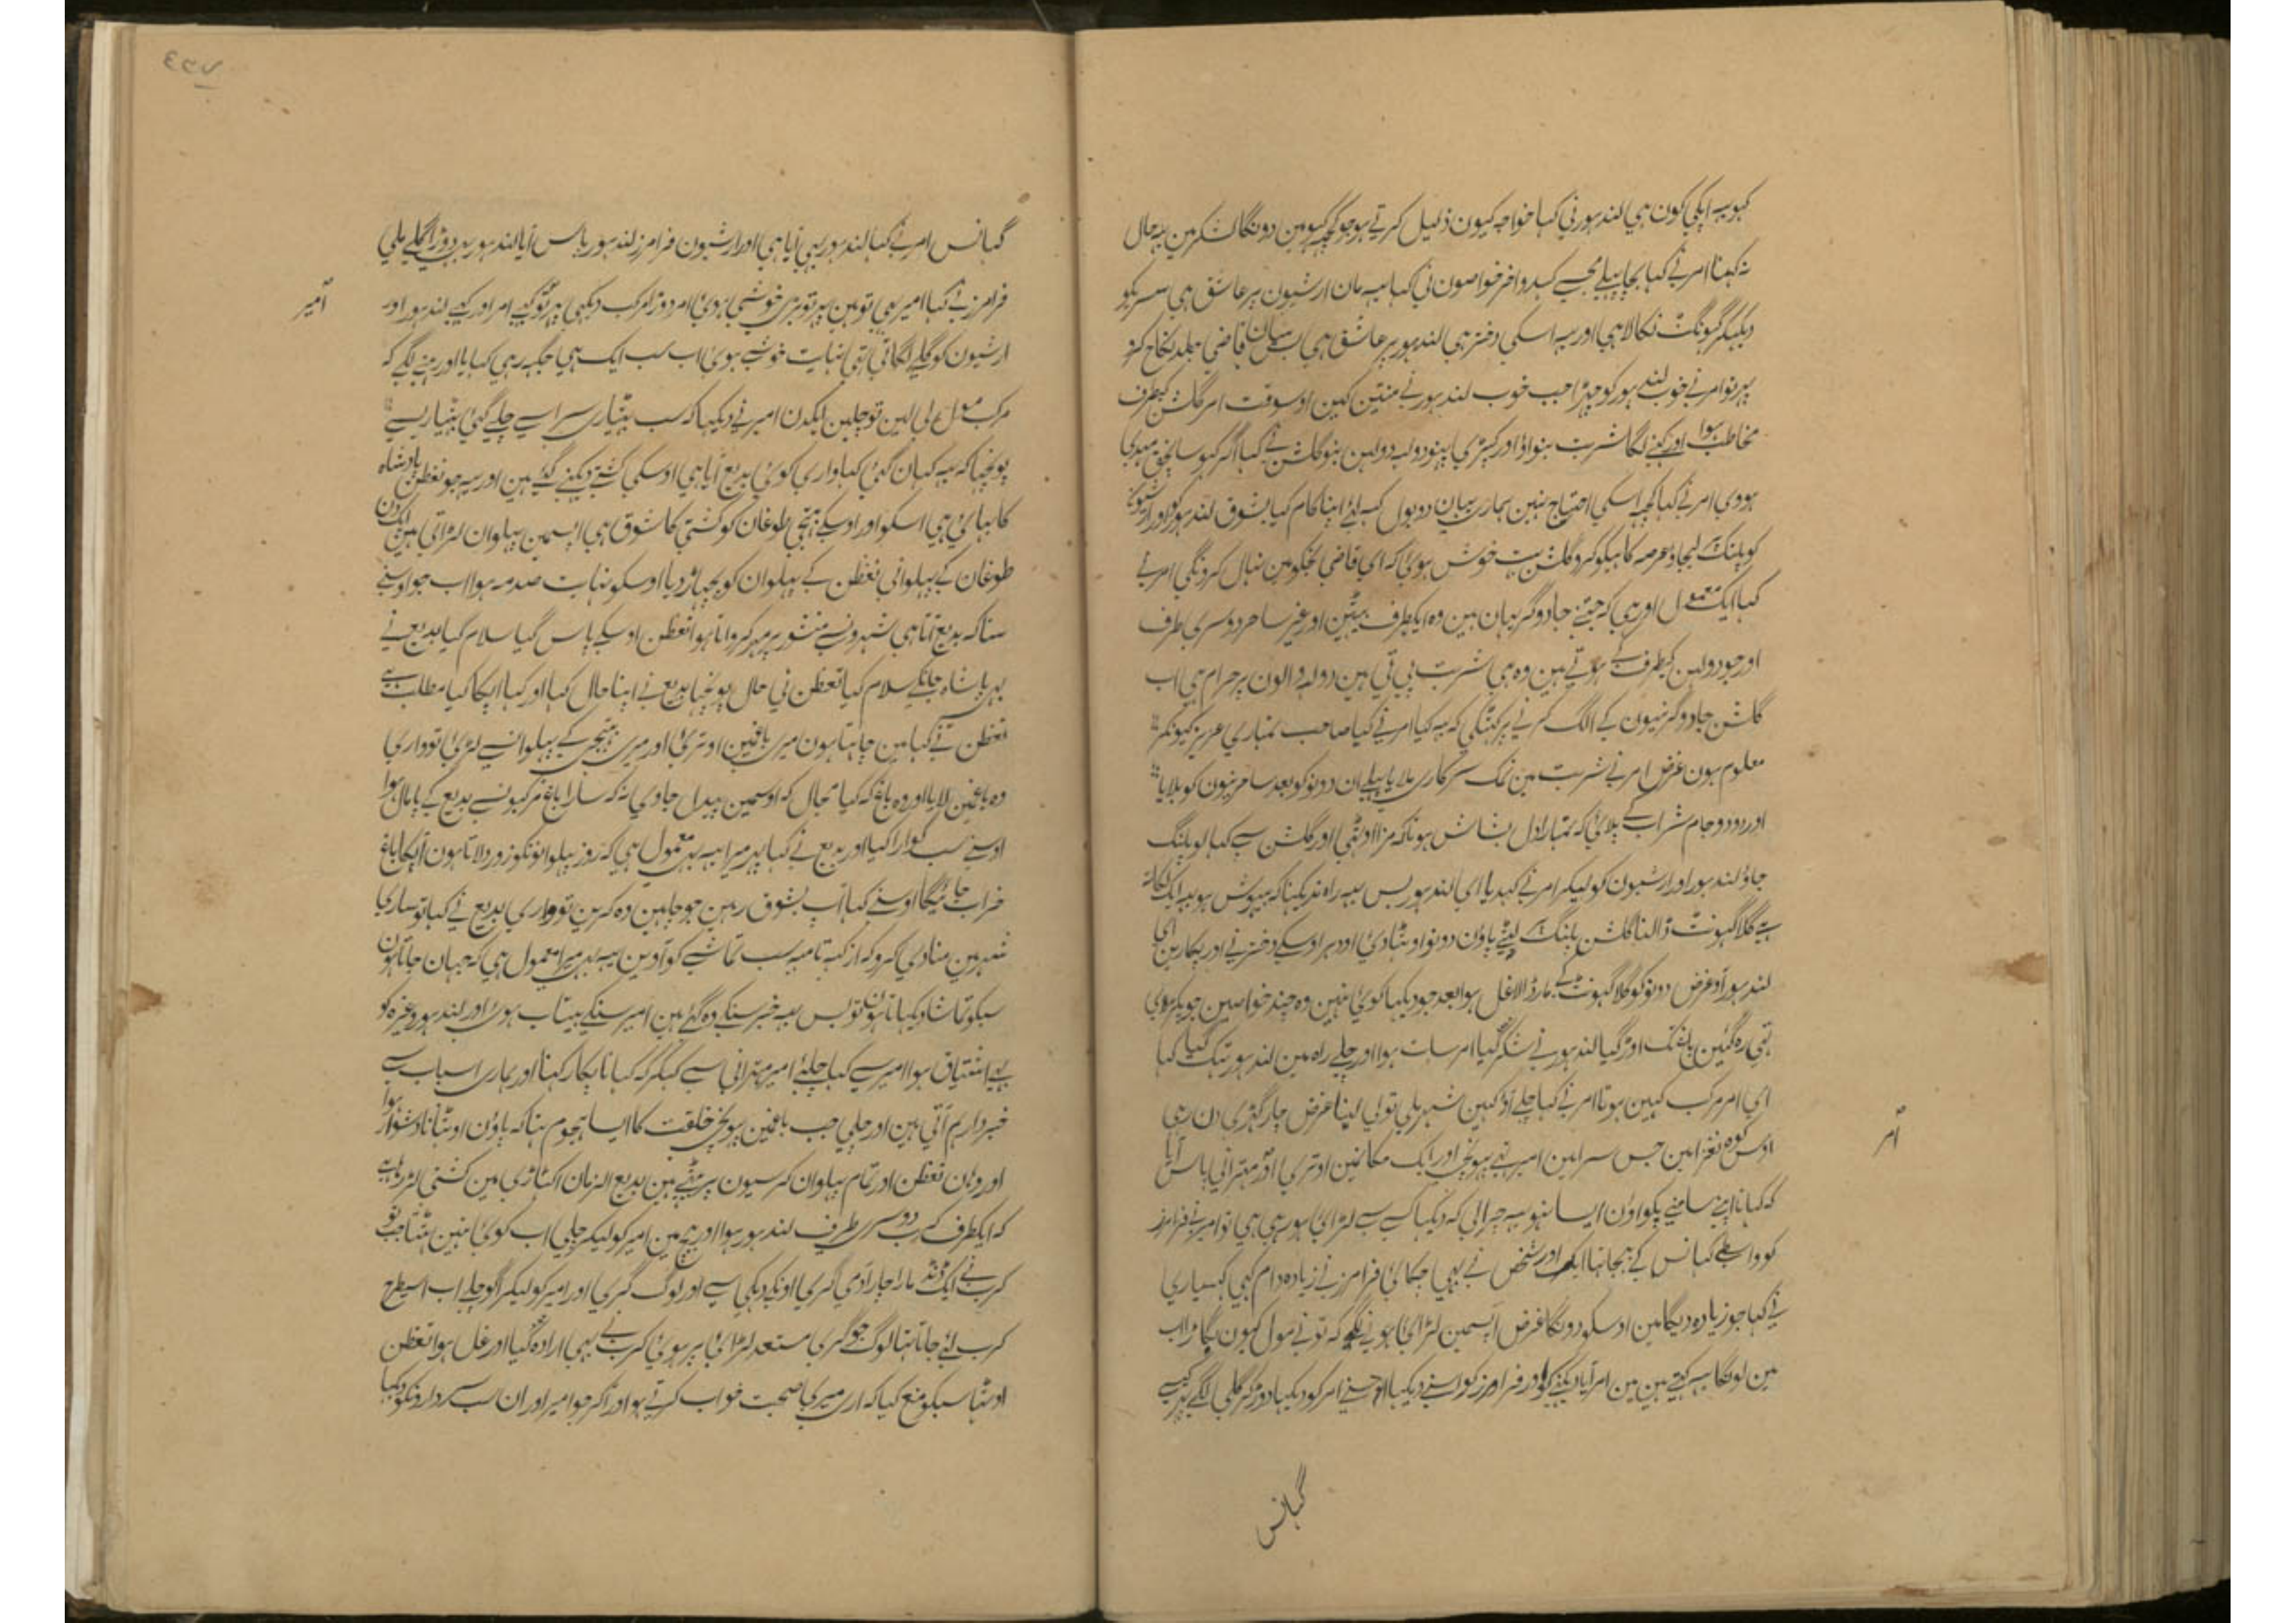 کہو یہ اپکی کون ہی لندہور نی کہا خواجہ کیون ذلیل کرتے ہو جو کچہہ کہو مین دونگا لشکر مین یہ حال
نہ کہنا امر نے کہا بچا پہلے مجہسے کہدو اخر خواصون نی کہا یہ مان ارشیون پر عاشق ہی
دیکہکر گہونگٹ نکالا ہی اور یہ اسکی دختر ہی لندہور پر عاشق ہی قاضی جلد نکاح
پہر تو امر نے خوب لندہور کو چہڑا جب خوب لندہور نے منتین کین اوسوقت امر گلشن کیطرف
مخاطب ہوا اور کہنے لگا شربت بنواؤ اور کپڑی پہنو دولہہ دولہن بنو گلشن نے کہا اگر کہو
ہووی امر نے کہا کچہہ اسکی احتیاج نہین ہماری یہان دو بول کہہ لئے اپنا کام کیا بشوق لندہور کو اور
کو پلنگ لیجاؤ عرصہ کاہیکو کرو گلشن بہت خوش ہوئی کہ ای قاضی تجکو مین نہال کرونگی امر نے
کہا ایک معمول اور ہی کہ جتنے جادوگر یہان ہین وہ ایکطرف بیٹہین اور غیر ساحر دوسری طرف
اور جو دولہن کیطرف کے ہوتے ہین وہ ہی شربت پی تی ہین دولہہ والون پر حرام ہی اب
گلشن جادوگرنیون کے الگ کرنے پر کہٹکی کہ یہ کیا امر نے کہا صاحب تمہاری عزیز کیونکر
معلوم ہون غرض امر نے شربت مین نمک سرکاری ملایا پہلے ان دونو کو بعد سامرنیون کو پلایا
اور دو دو جام شراب کے پلائی کہ تمہارا دل بشاش ہو تاکہ مزا اوٹہی اور گلشن سے کہا لو پلنگ
جاؤ لندہور اور ارشیون کو لیکر امر نے کہدیا ای لندہور بس یہہ راہ ندیکہنا کہ بیہوش ہو یہہ ایک
ہے گلا گہونٹ ڈالنا گلشن پلنگ لیٹے پاؤن دونو اوٹہا دئی اودہر اوسکے دختر نے اور پکارین ای
لندہور آؤ غرض دونو کو گلا گہونٹ کے مار ڈالا غل ہوا بعد جو دیکہا کوئی نہین وہ چند خواصین جو پکڑ ہوئی
تہی رہ گئین باغ تک اوڑ گیا لندہور نے شکر کیا امر سات ہوا اور چلے راہ مین لندہور تہک گیا کہا
ای امر مرکب کہین ہوتا امر نے کہا چلے آؤ کہین شہر ملی تو لی لینا غرض چار گہڑی دن رہی
اوس کوہ نغزا مین جس سرا مین امیر تہے پہونچی اور ایک مکانمین اوتری امر مہترانی پاس آیا
کہ کہانا اپنے سامنے پکواؤن ایسا نہو یہ چرالی کہ دیکہا کسے سے لڑائی ہو رہی ہی تو امیر نے فرامرز
کو واسطے گہانس کے بہجا تہا ایک اور شخص نے بہی چکائی فرامرز نے زیادہ دام کہی گہسیاری
نے کہا جو زیادہ دیگا مین اوسکو دونگا غرض آپسمین لڑائی ہونے لگے کہ تو نے مول کیون بگاڑا اب
مین لونگا یہہ کہتے ہین مین امر آیا دیکہنے کو اور فرامرز کو اسنے دیکہا اوسنے امر کو دیکہا دوڑ کر گلی لگے
گہانس
امر
گہانس امر نے کہا لندہور بہی آیا ہی اور ارشیون فرامرز لندہور پاس آیا لندہور بہی دوڑا گلے ملی
فرامرز نے کہا امیر بہی تو ہین پہر تو بڑی خوشی ہوئی امر دوڑا مرکب دیکہی پہر تو گئے امر اور گئے لندہور اور
ارشیون کو گلے لگاتی تہی نہایت خوشے ہوئی اب سب ایک ہی جگہہ رہی کہایا اور رہنے لگے کہ
مرکب مول لی لین تو چلین ایکدن امیر نے دیکہا کہ سب بہٹیاری سراسے چلے گئی بہٹیاریسے
پوچہا کہ یہ کہان گئی کہا واری کوئی بدیع آیا ہی اوسکی کشتے دیکہنے گئے ہین اور یہہ جو نغظن بادشاہ
کا بہائی ہی اسکو اور اوسکے بہتیجے طوغان کو کشتی کا شوق ہی آپسمین پہلوان لڑاتی ہین ایکدن
طوغان کے پہلوانی نغظن کے پہلوان کو بچہاڑ دیا اوسکو نہایت صدمہ ہوا اب جو اوسنے
سنا کہ بدیع آتا ہی شہرونسے منشور پر مہر کرواتا ہوا نغظن اوسکے پاس گیا سلام کیا بدیع نے
بہی بادشاہ جانکے سلام کیا نغظن نی حال پوچہا بدیع نے اپنا حال کہا اور کہا اپکا کیا مطلب ہے
نغظن نے کہا مین چاہتا ہون میری باغمین اوتری اور میری بہتیجے کے پہلوانسے لڑی تو واری
وہ باغمین لایا اور وہ باغ کہ کیا مجال کہ اوسمین پیدل جاوی نہ کہ سارا باغ مرکبونسے بدیع کے پامال ہوا
اوسنے سب گوارا کیا اور بدیع نے کہا پہر میرا یہہ بہی معمول ہی کہ روز پہلوانونکو زور دلاتا ہون آپکا باغ
خراب جائیگا اوسنے کہا آپ بشوق رہین جو چاہین وہ کرین تو واری بدیع نے کہا تو ساری
شہر مین منادی کرو کہ از کہہ تا مہہ سب تماشے کو آوین یہہ بہی میرا معمول ہی کہ جہان جاتا ہون
سبکو تماشا دیکہاتا ہون تو بس یہہ خبر سنکے وہ گئے ہین امیر سنکے بیتاب ہوئی اور لندہور وغیرہ کو
بہی اشتیاق ہوا امیر سے کہا چلئے امیر مہترانی سے کہکر کہ کہانا پکا رکہنا اور ہماری اسباب سے
خبردار ہم آتی ہین اور چلی جب باغمین پہونچی خلقت کا ایسا ہجوم تہا کہ پاؤن اوٹہانا دشوار ہوا
اور وہان نغظن اور تمام پہلوان کرسیون پر بیٹہے ہین بدیع الزمان اکہاڑی مین کشتی لڑ رہا ہے
کہ ایکطرف کرب دوسری طرف لندہور ہوا اور بیچ مین امیر کو لیکر چلی اب کوئی نہین ہٹتا جب تو
کرب نے ایک ڈنڈ مارا چار آدمی گری اونکے دہکی سے اور لوگ گری اور امیر کو لیکر آگو چلے اب اسیطرح
کرب لئے جاتا تہا لوگ جو گری مستعد لڑائی پر ہوئی کرب نے بہی ارادہ کیا اور غل ہوا نغظن
اوٹہا سبکو منع کیا کہ اری میری صحبت خراب کرتے ہو اور اکر جو امیر اور ان سب سردارونکو دیکہا
امیر